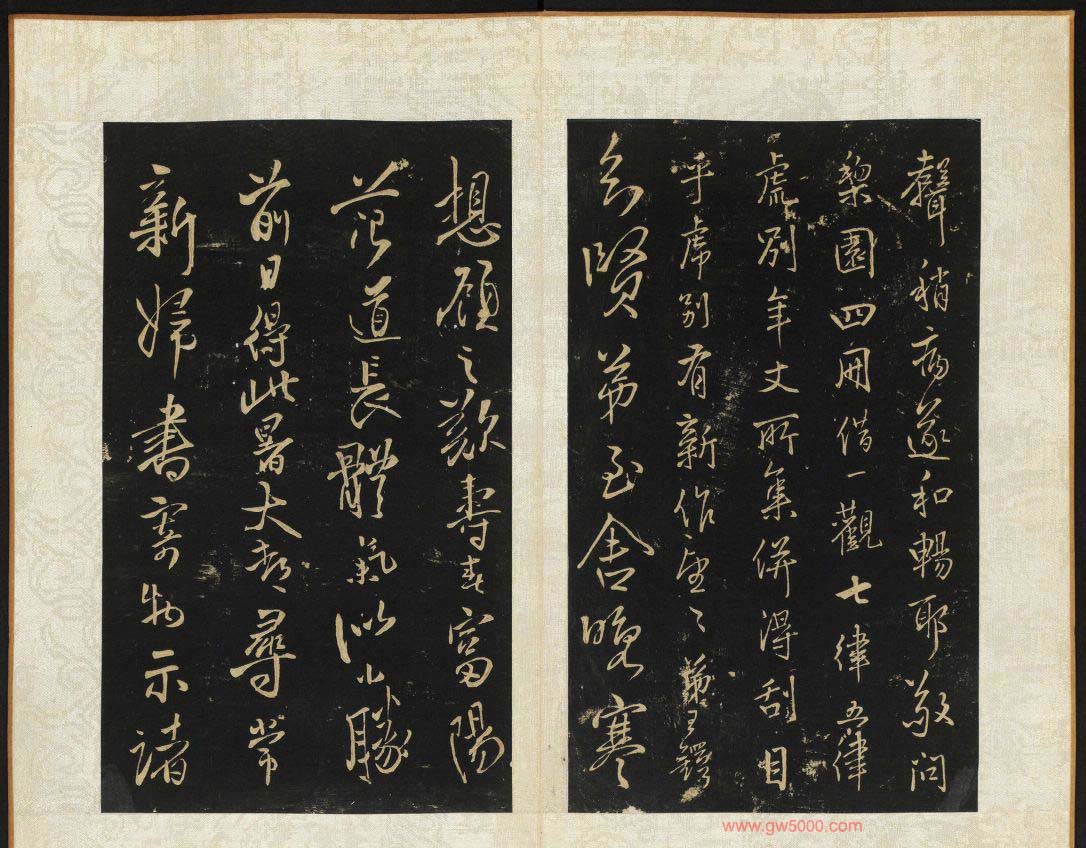 聲稍病遂和暢耶敬問
梨園四冊借一觀七律五律
處別年丈所集併得刮目
乎處別有新作望〻弟王鐸
賢弟至舍晚寒
想顧之歎壽春富陽
道長體氣似小勝
前日得此暑大都尋常
新婦書寄物示諸
www.gw5000.com